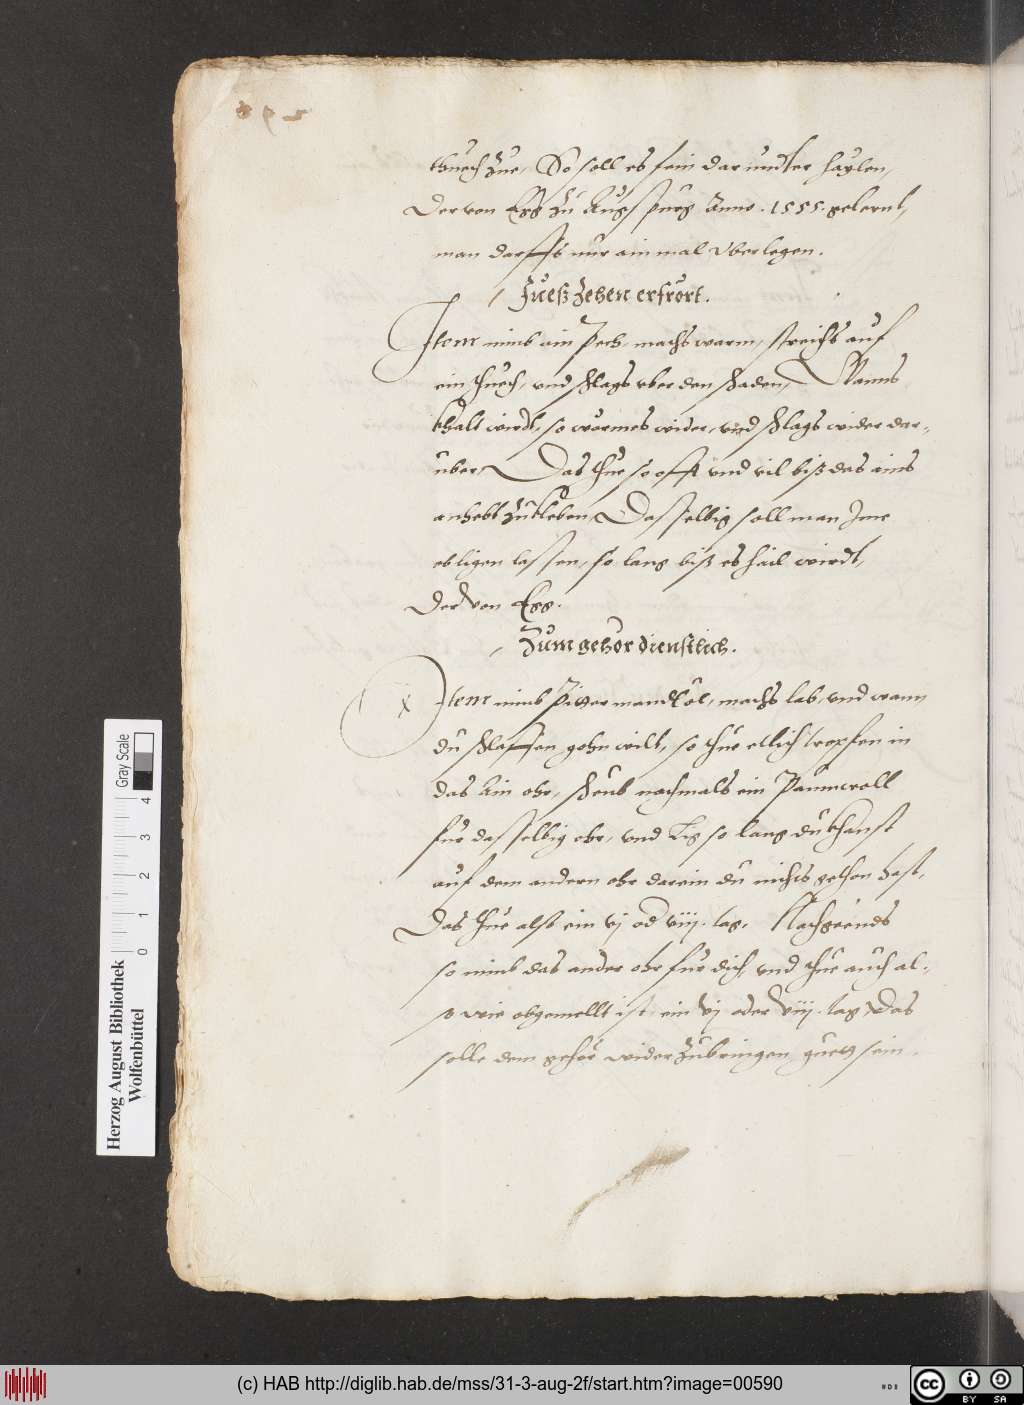 thuech Zue, So soll es sein darundter haylen,
Der von Egg zu Augspurg Anno .1555. gelernt,
man darffs nur ain mal vberlegen.
Zu eß Zehen erfrort.
Item nimb ain Pech, machs warm, streichs auf
ein thuech, vnd schlags vber den schaden, Wanns
khalt wirdt, so wörmes wider, vnd schlags wider dar-
über, Das thue so offt vnd vil biß das ains
anhebt zu kleben, Dasselbig soll man Ime
ob ligen lassen, so lang biß es hail wirdt,
Der von Egg.
Zum gehör dienstlich.
x Item nimb Pittermandl öl, machs lab, vnd wann
du schlaffen gehn wilt, so thue etlich tropfen in
das ain ohr, scheub nachmals ein Paumwoll
für dasselbig ohr, vnd Lig so lang du khanst
auf dem andern ohr darein du nichts gethon hast,
Das thue also ein vj od viij. tag, Nachgeends
so nimb das ander ohr für dich, vnd thue auch al-
so wie obgemellt ist, ein vj oder viij. tag, Das
solle dem gehör wider zubringen guett sein.
Gray Scale
0 1 2 3 4
Herzog August Bibliothek
Wolfenbüttel
(c) HAB http://diglib.hab.de/mss/31-3-aug-2f/start.htm?image=00590
cc BY SA